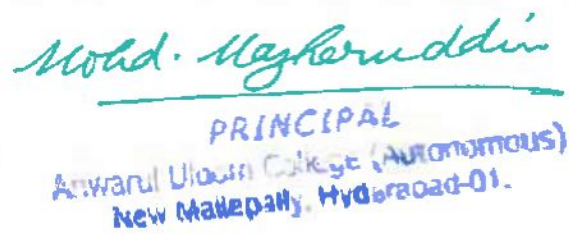 Mohd. Mazharuddin
PRINCIPAL
Anwarul Uloom College (Autonomous)
New Mallepally, Hyderabad-01.